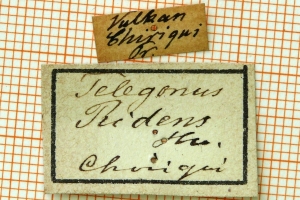 Vulkan
Chiriqui
Telegonus
Ridens
Hw.
Chiriqui